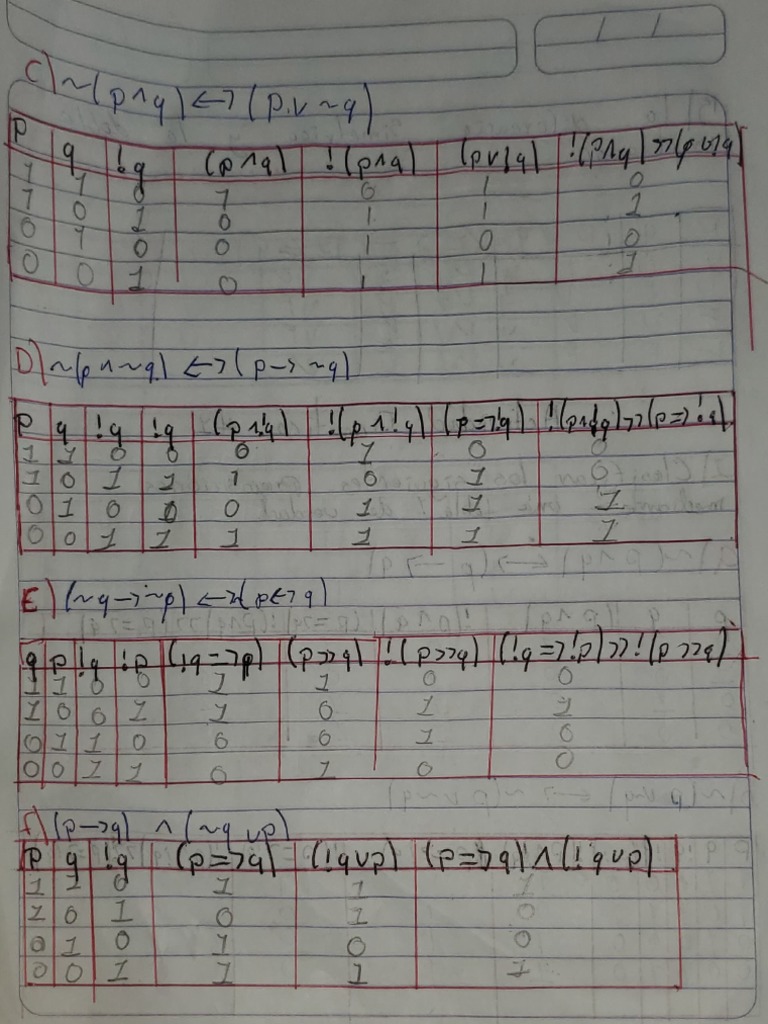 C) ~(p∧q) ↔ (p∨~q)
p q !q (p∧q) !(p∧q) (p∨!q) !(p∧q)>>(p∨!q)
1 1 0 1 0 1 0
1 0 1 0 1 1 1
0 1 0 0 1 0 0
0 0 1 0 1 1 1
D) ~(p∧~q) ↔ (p→~q)
p q !q !q (p∧!q) !(p∧!q) (p=>!q)
1 1 0 0 0 1 0 0
1 0 1 1 1 0 1 0
0 1 0 0 0 1 1 1
0 0 1 1 1 1 1 1
E) (~q→~p) ↔ (p↔q)
q p !q !p (p<>q) !(p<>q)
1 1 0 0 1 1 0 0
1 0 0 1 1 0 1 1
0 1 1 0 0 0 1 0
0 0 1 1 0 1 0 0
f) (p→q) ∧ (~q∨p)
p q !q (p=>q) (!q∨p) (p=>q)∧(!q∨p)
1 1 0 1 1 1
1 0 1 0 1 0
0 1 0 1 0 0
0 0 1 1 1 1